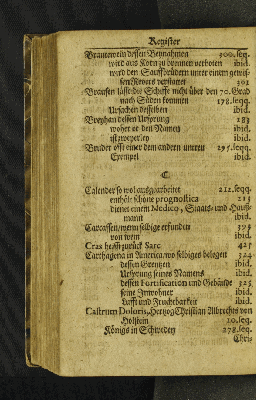 Register
Brantewein dessen Beynahmen 300.seqq.
wird aus Korn zu brennen verboten ibid.
wird den Sauffbrüdern unter einem gewis-
sen Revers verstattet 301
Brausen lässt die Schiffe nicht über den 70. Grad
nach Süden kommen 178.seqq.
Ursachen desselben ibid.
Breyhan dessen Ursprung 283
woher er den Namen ibid.
ist zweyerley ibid.
Bruder offt einer dem andern untreu 295.seqq.
Exempel ibid.
C
Calender so wol ausgearbeitet 212.seqq.
enthält schöne prognostica 213
dienet einem Medico, Staats- und Hauß-
mann ibid.
Carcassen, wenn selbige erfunden 375
von wem ibid.
Cras heißt zurück Sarc 427
Carthagena in America, wo selbiges belegen 324
dessen Grentzen ibid.
Ursprung seines Namens ibid.
dessen Fortification und Gebäude 325
seine Inwohner ibid.
Lufft und Fruchtbarkeit ibid.
Castrum Doloris, Hertzog Christian Albrechts von
Holstein 20.seq.
Königs in Schweden 278.seq.
Chris-